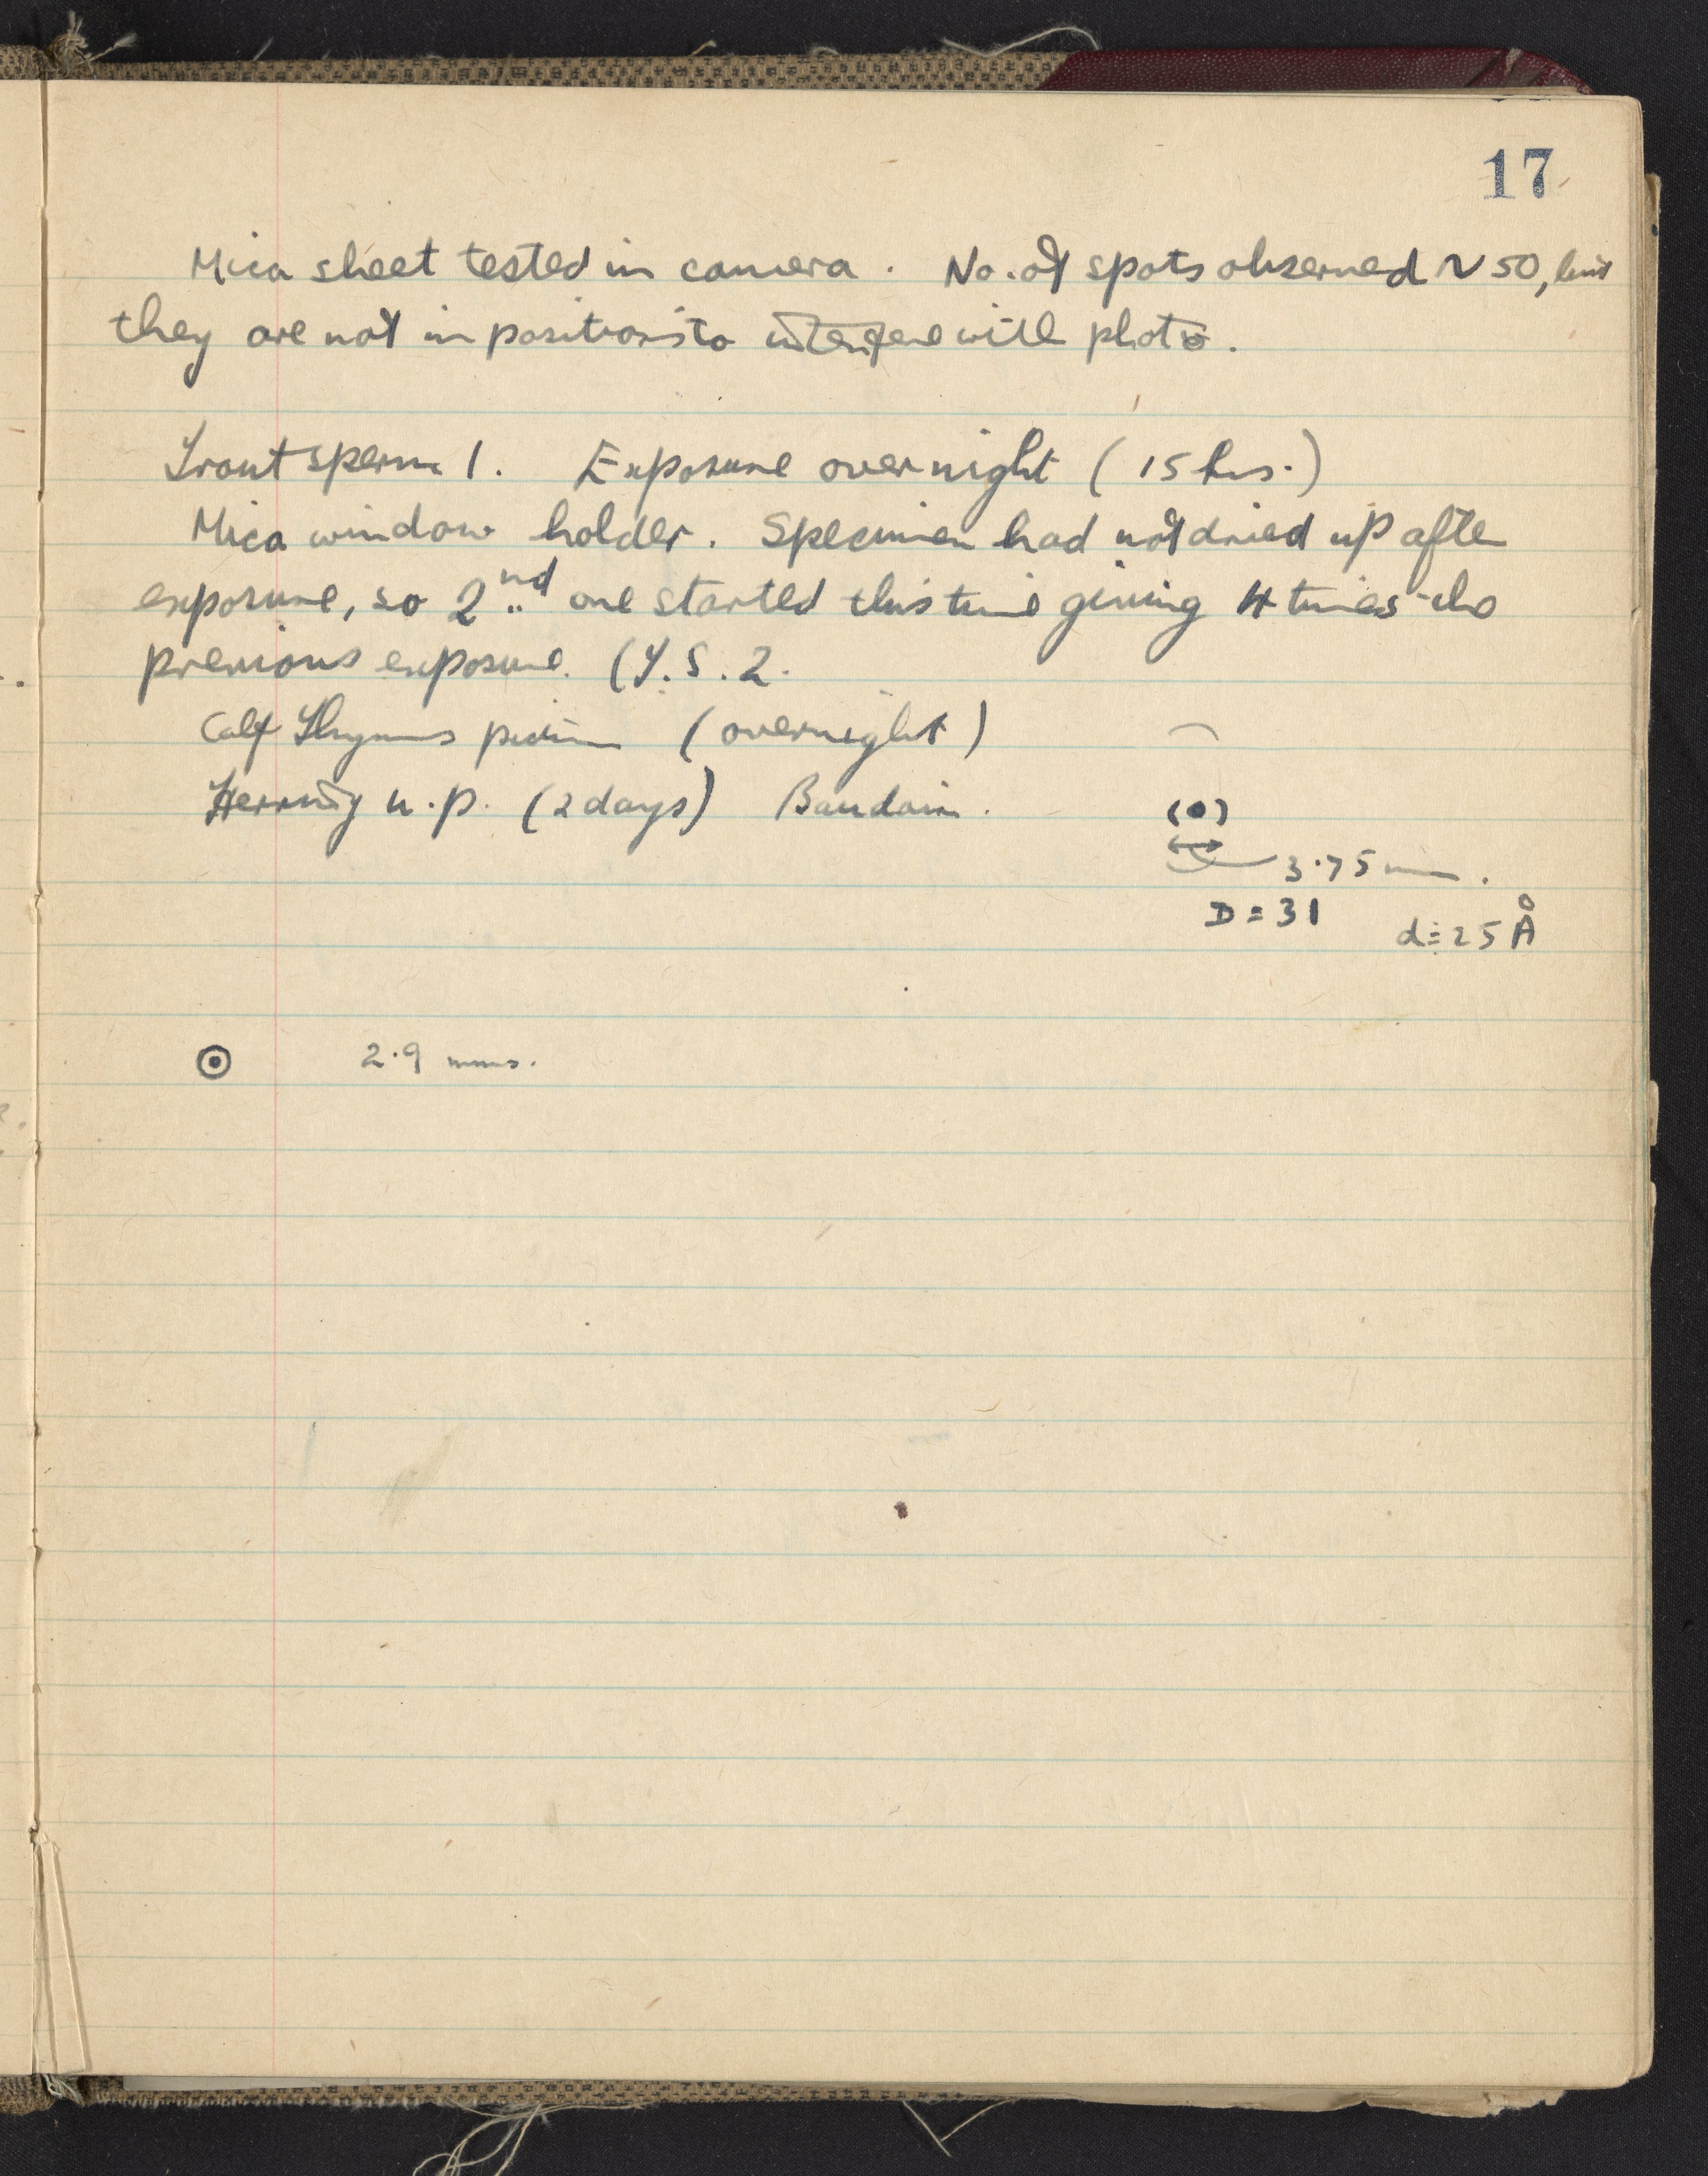 17
Mica sheet tested in camera. No. of spots observed ~ 50, but
they are not in positions to interfere with photo.
Trout sperm 1. Exposure overnight (15 hrs.)
Mica window holder. Specimen had not dried up after
exposure, so 2nd one started this time giving 4 times the
previous exposure. (T.S.2.
Calf Thymus (overnight)
Herring n.p. (2 days) Baudain.
3.75 mm.
D = 31 d = 25 Å
2.9 mms.